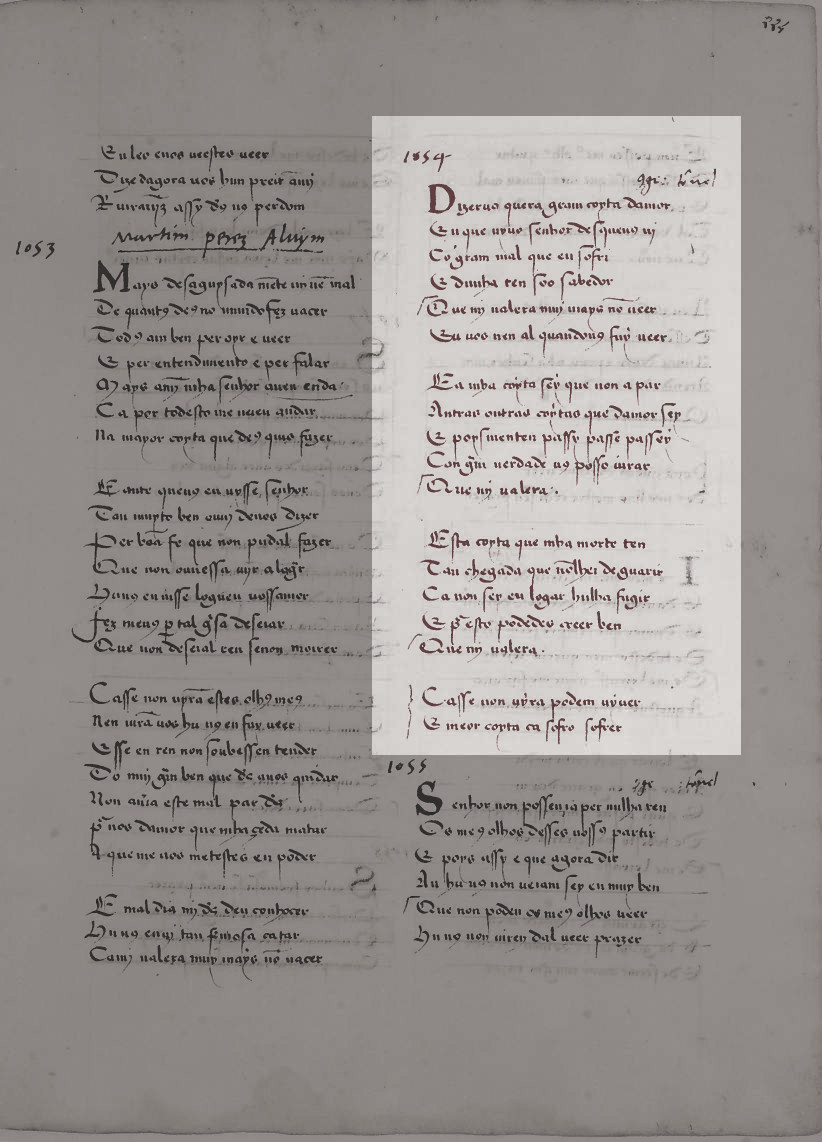 En les enos veestes veer
Dizedagora uos hun preit amj
Martim perez Alujm
1053
Mayo desaguysada mẽte mj uẽ mal
De quantꝯ deꝯ no mundo fez nacer
Todꝯ am ben per oyr e veer
E per entendimento e per falar
Mays amj̃ mha senhor auen enda
Ca per todesto me ueeu andar
Na mayor coyta que deꝯ quis fazer
E ante queuꝯ eu uysse senhor
Tan muyto ben ouuj deuos dizer
Per bõa fe que non pudal fazer
Que non ouuessa uijr a logar
Hu uꝯ eu uisse logueu uossamor
Fez meuꝯ ꝑ tal gisa deseiar
Que non deseial ren senon morrer
Casse non uyrã estes olhꝯ meꝯ
Nen uirã uos hu uꝯ eu fuy veer
Esse eu ren non soubessen tender
Do muj grãn ben que deꝯ auos quis dar
Non auia este mal par deꝯ
por uos damor que mha ceda matar
A que me uos metestes en poder
E mal dia mj deꝯ deu conhocer
Hu uꝯ eu uj tan fremosa catar
Camj ualera muj mays nõ nacer
1054
tornel
Dizer uꝯ quera gram coyta damor
En que uyuo senhor desqueuꝯ uj
E o gram mal que eu sofri
E dunha ren soo sabedor
Que mj ualera muj mays nõ veer
Eu uos nen al quandouꝯ fuy veer
Ea mha coyta sey que non a par
Antras outras coytas que damor sey
E poys menten passy passe passey
Con grã uerdade uꝯ posso iurar
Que mj ualera.
Esta coyta que mha morte ten
Tan chegada que nõ lhei de guarir
Ca non sey eu logar hulha fugir
E per esto podedes creer ben
Que mj ualera.
Casse non uyra podem uyuer
E meor coyta ca sofro sofrer
1055
tornel
Senhor non possen ia per nulha ren
Os meꝯ olhos desses uossꝯ partir
E poys assy e que agora dir
An hu uꝯ non ueiam sey eu muy ben
Que non poden os meꝯ olhos veer
Hu uꝯ non uiren dal veer prazer